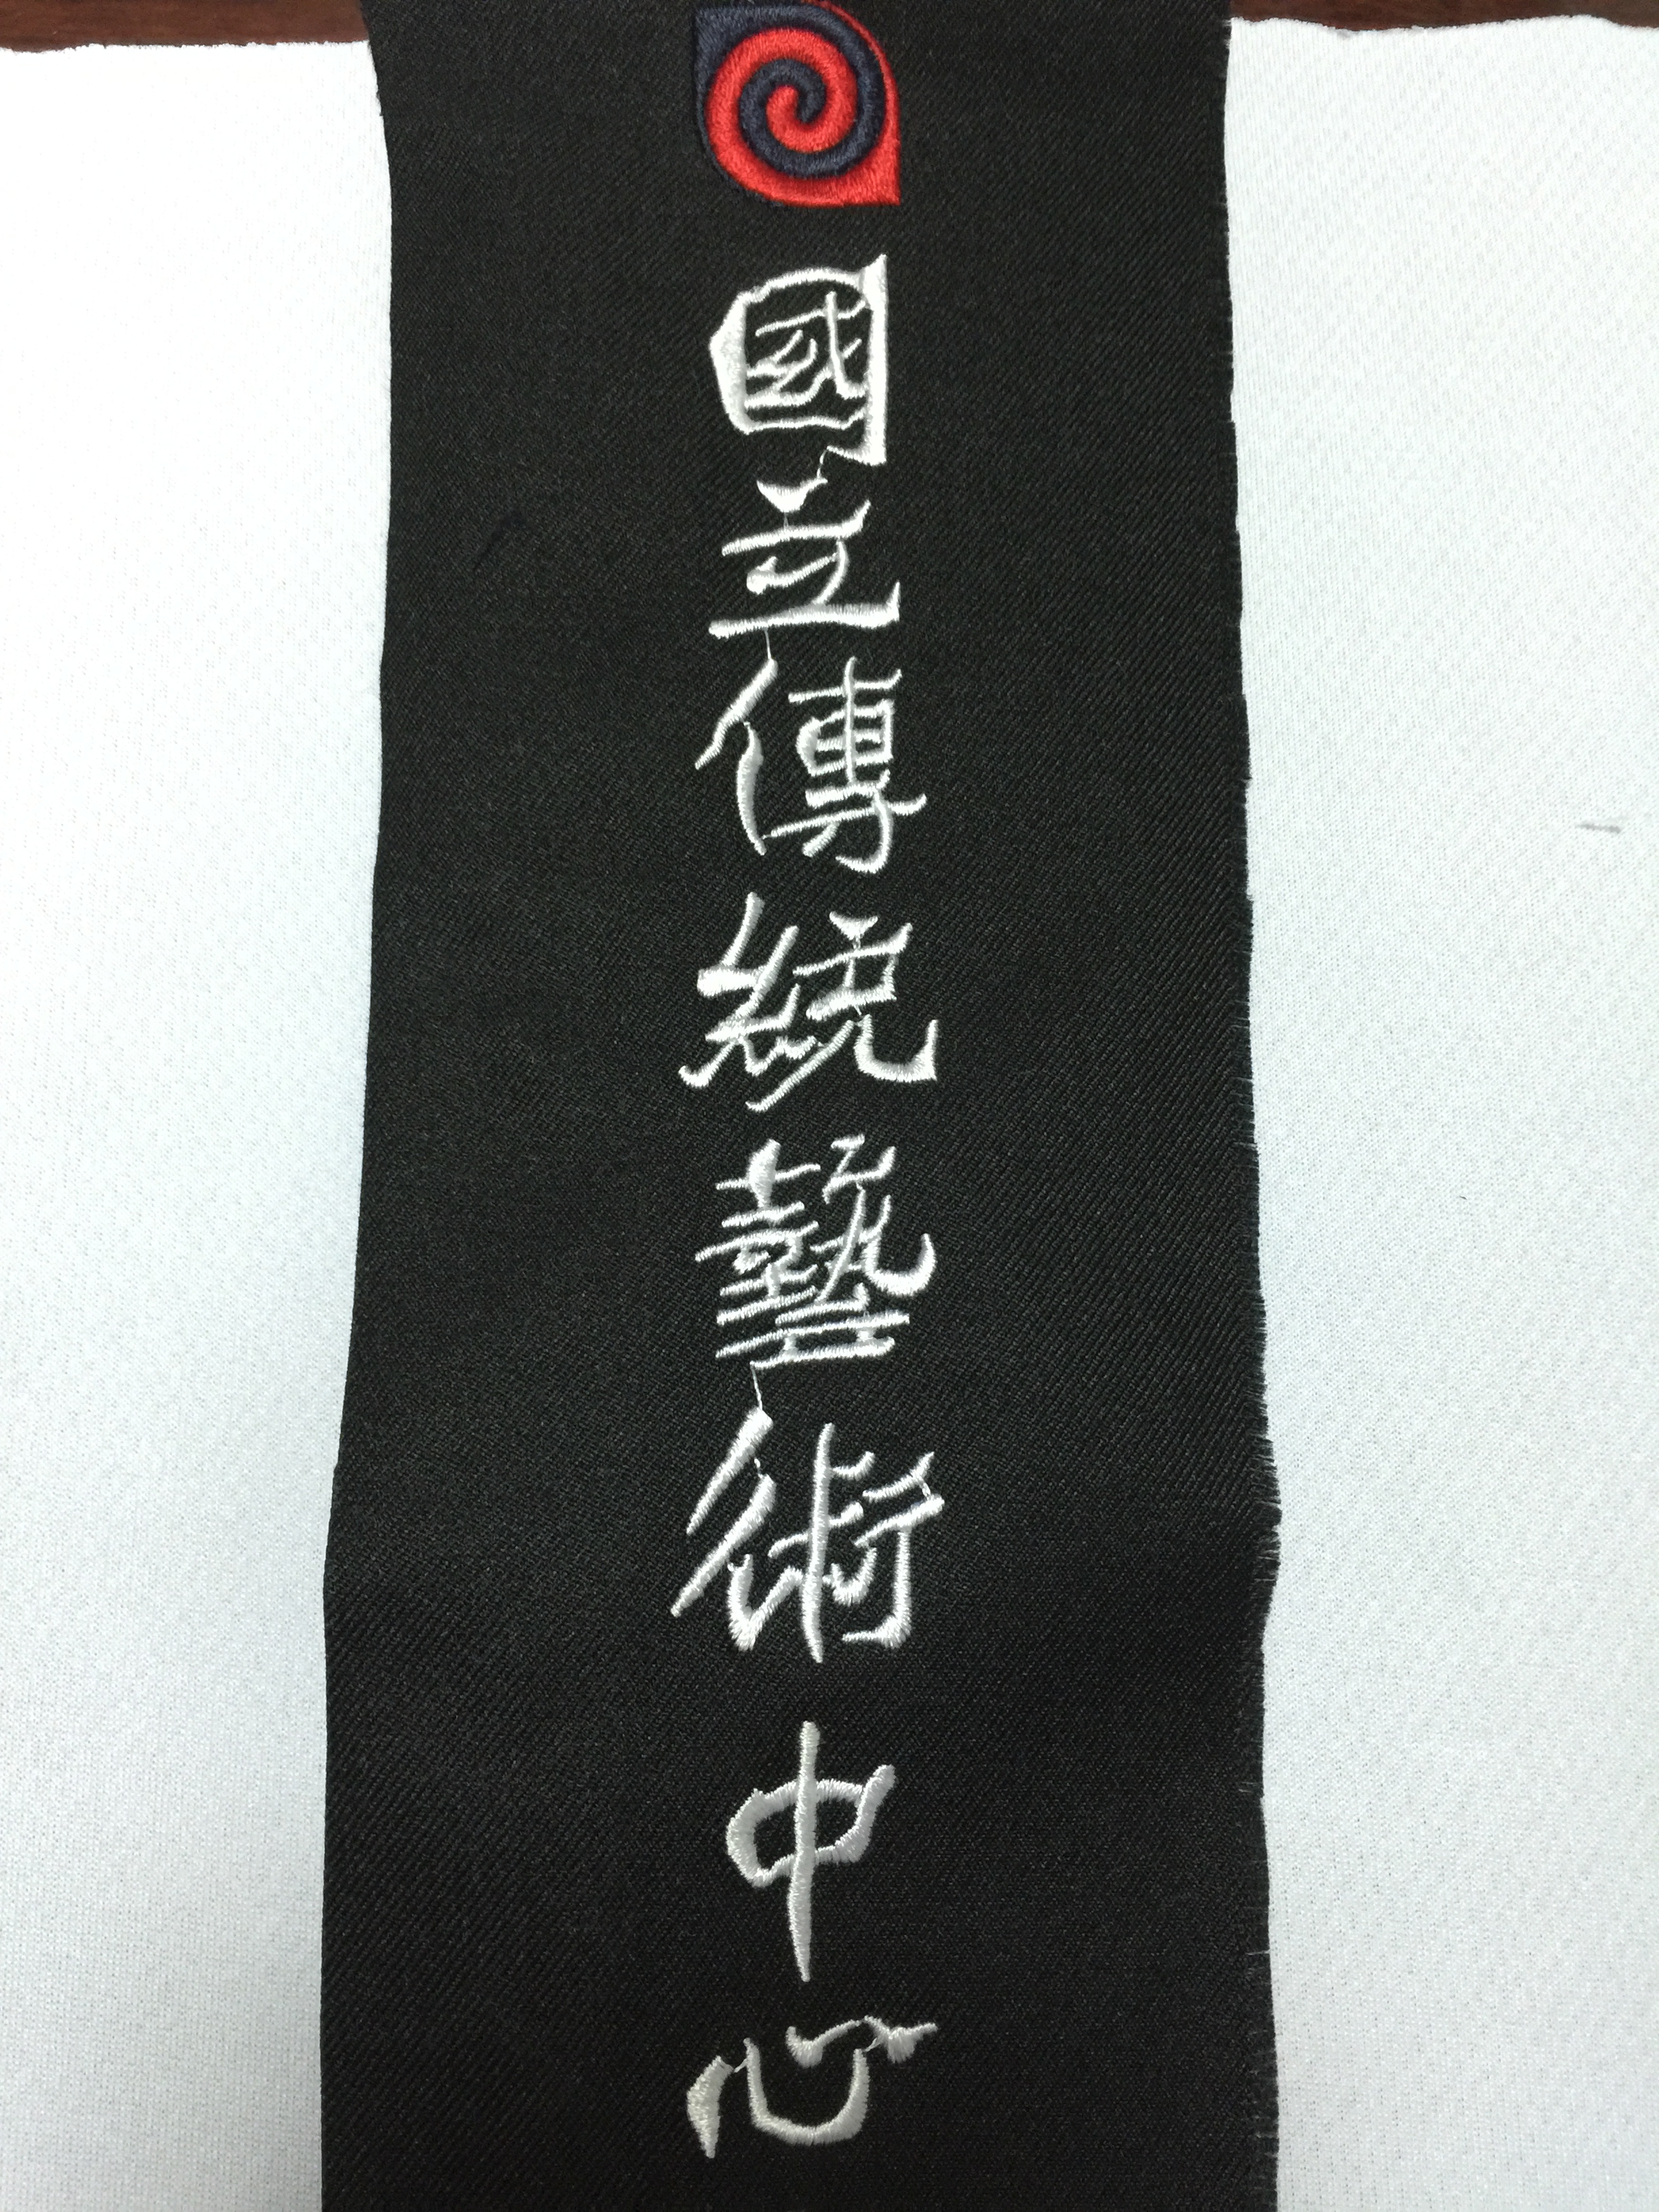 國立傳統藝術中心